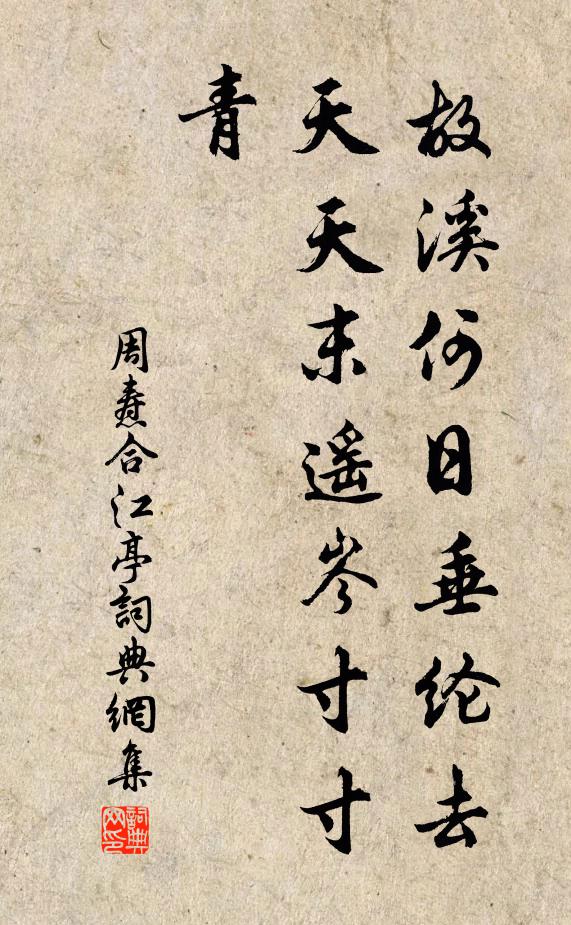 故溪何日垂纶去
天天末遥岑寸寸
青
周焘合江亭詞典網集
詞典
网印